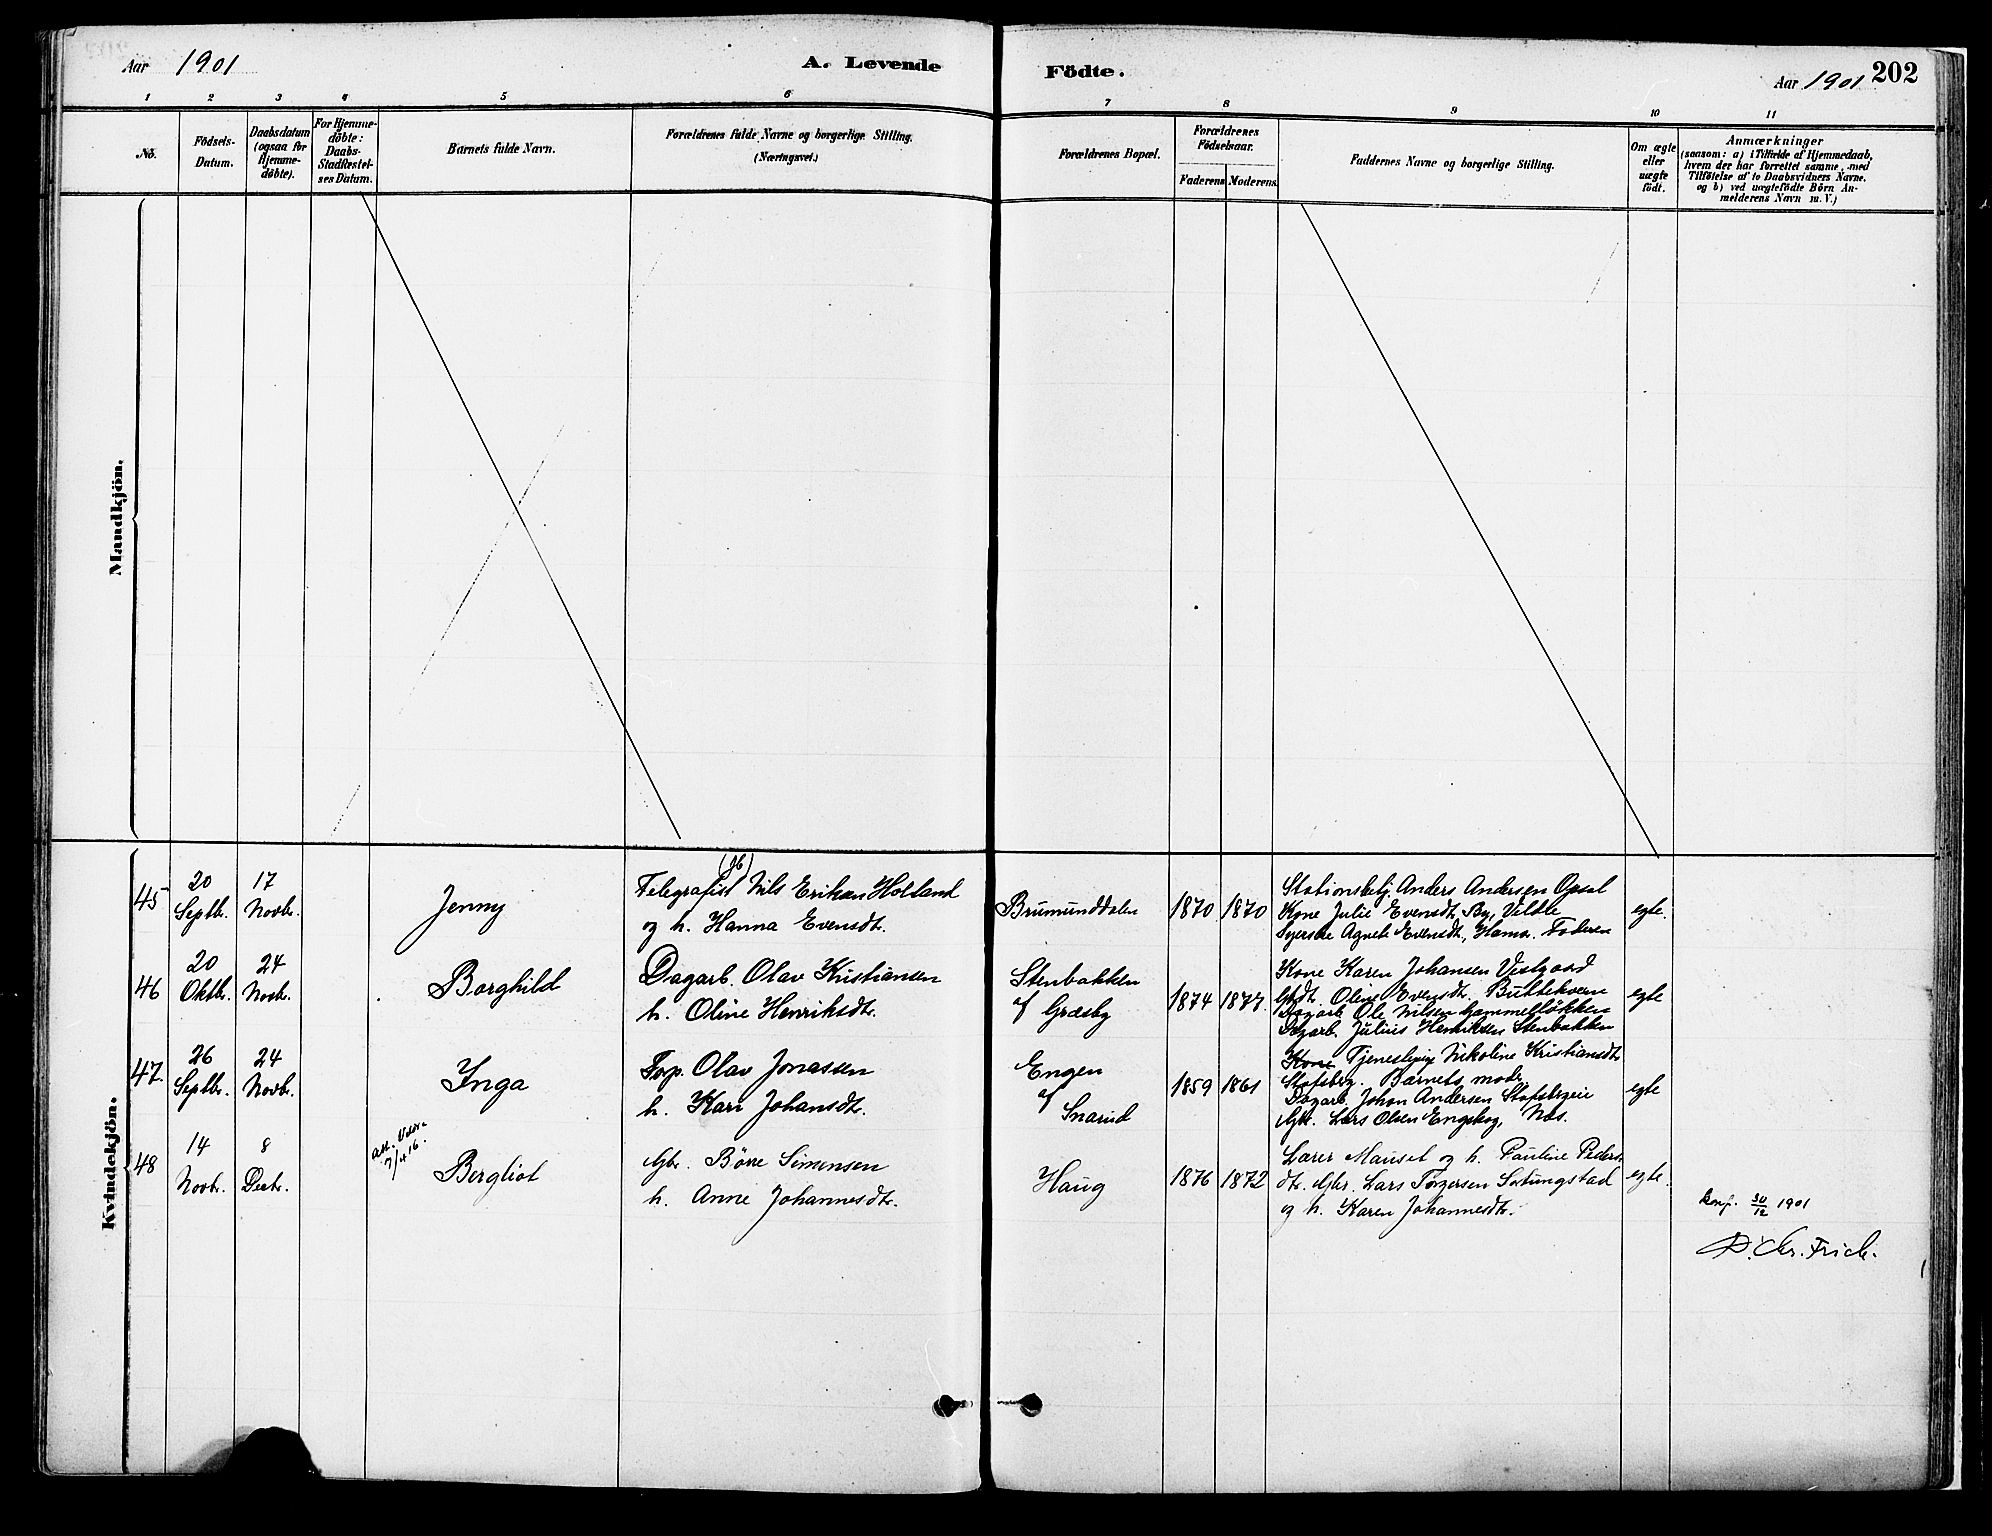 Aar 1901
A. Levende
Födte.
Aar 1901
202
1 2 3 4 5 6 7 8 9 10 11
No.
Födsels-
Datum.
Daabsdatum
(ogsaa for
Hjemme-
döbte).
For Hjemme-
döbte:
Daabs-
Stadfæstel-
ses Datum.
Barnets fulde Navn.
Forældrenes fulde Navne og borgerlige Stilling.
(Næringsvei.)
Forældrenes Bopæl.
Forældrenes
Födselsaar.
Faderens Moderens
Faddernes Navne og borgerlige Stilling.
Om ægte
eller
uægte
födt.
Anmærkninger
(saasom: a) i Tilfælde af Hjemmedaab,
hvem der har forrettet samme, med
Tilföielse af to Daabsvidners Navne,
og b) ved uægtefödte Börn An-
melderens Navn m. V.)
Mandkjön.
Kvindekjön.
45
20
Septbr.
17
Novbr.
Jenny
Telegrafist Nils Eriksen Holland
og h. Hanna Evensdt.
Brumunddalen
1870 1870
Stationsbetj. Anders Andersen Opsal
Kone Julie Evensdt. By, Veldle
Syerske Agnete Evensdt, Hamar. Faderen
egte.
46
20
Oktbr.
24
Novbr.
Borghild
Dagarb. Olav Kristiansen
h. Oline Henriksdt.
Stenbakken
af Græsby
1874 1877.
Kone Karen Johansen Vestgaard
Gbdt. Oline Evensdt. Buttekvern
Dagarb. Ole Nilsen Gammelløkken
Dagarb. Julius Henriksen Stenbakken
egte
47.
26
Septbr.
24
Novbr.
Inga
Forp. Olav Jonassen
h. Kari Johansdt.
Engen
af
Snarud
1859 1861
Kone Tjenestepige Nikoline Kristiansdt.
Stafsberg. Barnets moder
Dagarb. Johan Andersen Stafsbergeie
Gbr. Lars Olsen Engskog, Næs.
egte
48
14
Novbr.
8
Decbr.
Att.
7/4 16.
Bergliot
Gbr. Börre Simensen
h. Anne Johannesdtr.
Haug
1876 1872
Lærer Mauset og h. Pauline Peders-
dtr. Gbr. Lars Torgersen Sætungstad
og h. Karen Johannesdtr.
egte.
konf. 30/12 1901
Chr. Frich.